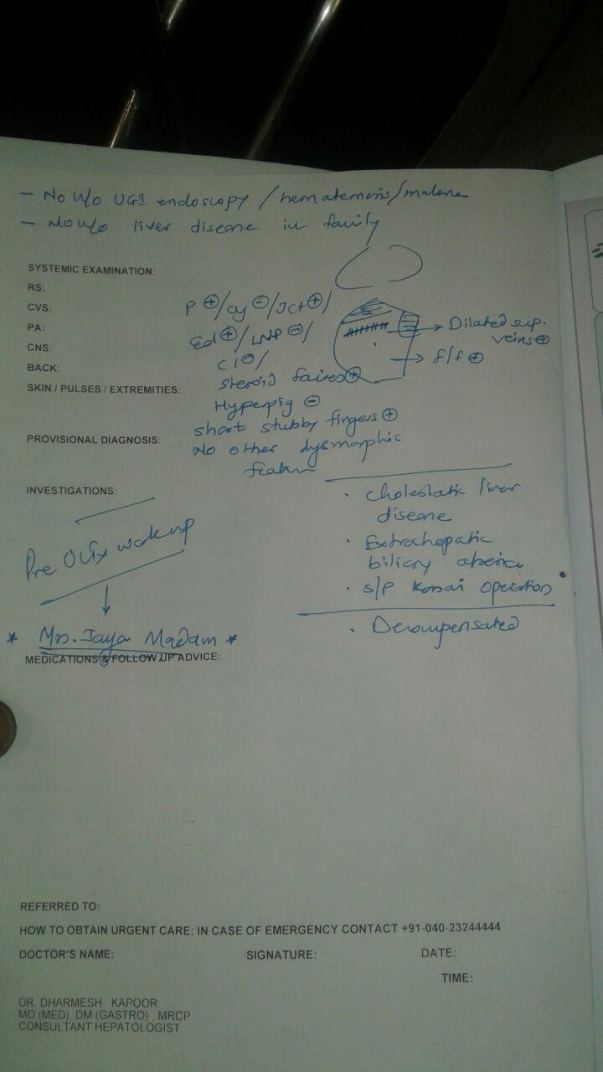 - No H/o UGI endoscopy / hematemesis / malena
- No H/o liver disease in family
SYSTEMIC EXAMINATION:
RS:
CVS:
PA:
CNS:
BACK:
SKIN / PULSES / EXTREMITIES:
P ⊕/cy ⊖/Ict ⊕/
Ed ⊕/ LNP ⊖/
Cl ⊖/
steroid facies ⊕
Hyperpig ⊖
short stubby fingers ⊕
No other dysmorphic
feature
→ Dilated sup.
veins ⊕
→ f/f ⊕
PROVISIONAL DIAGNOSIS:
INVESTIGATIONS:
· Cholestatic liver
disease
· Extrahepatic
biliary atresia
· S/P Kasai operation
· Decompensated
Pre OLTx work up
* Mrs. Jaya Madam *
MEDICATIONS & FOLLOW UP ADVICE:
REFERRED TO:
HOW TO OBTAIN URGENT CARE: IN CASE OF EMERGENCY CONTACT +91-040-23244444
DOCTOR'S NAME: SIGNATURE: DATE:
TIME:
DR. DHARMESH KAPOOR
MD (MED), DM (GASTRO) MRCP
CONSULTANT HEPATOLOGIST